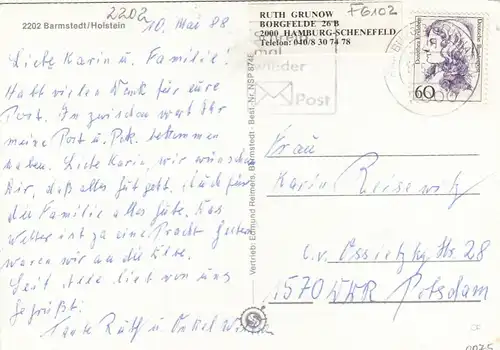 2202
2202 Barmstedt/Holstein
10. Mai 88
Liebe Karin u. Familie!
Habt vielen Dank für eure
Post. Inzwischen werdet Ihr
meine Post u. Pck. bekommen
haben. Liebe Karin, wir wünschen
Dir, daß alles gut geht. Auch für
die Familie alles Gute. Das
Wetter ist ja eine Pracht. Gestern
waren wir an die Elbe.
Seid alle lieb von uns
gegrüßt.
Tante Ruth u. Onkel
Vertrieb: Edmund Reimers, Barmstedt - Best. Nr. NSP 874E
RUTH GRUNOW
BORGFELDE 26 B
2000 HAMBURG-SCHENEFELD
Telefon: 040/8 30 74 78
F6102
mal
wieder
Post
Deutsche Bundespost
60
Frau
Karin Reisewitz
C. v. Ossietzky Str. 28
1570 DDR Potsdam